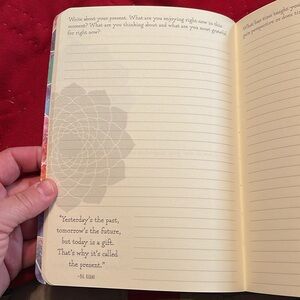 Write about your present. What are you enjoying right now in this
moment? What are you thinking about and what are you most grateful
for right now?
"Yesterday's the past,
tomorrow's the future,
but today is a gift.
That's why it's called
the present."
—BIL KEANE
What has time taught you